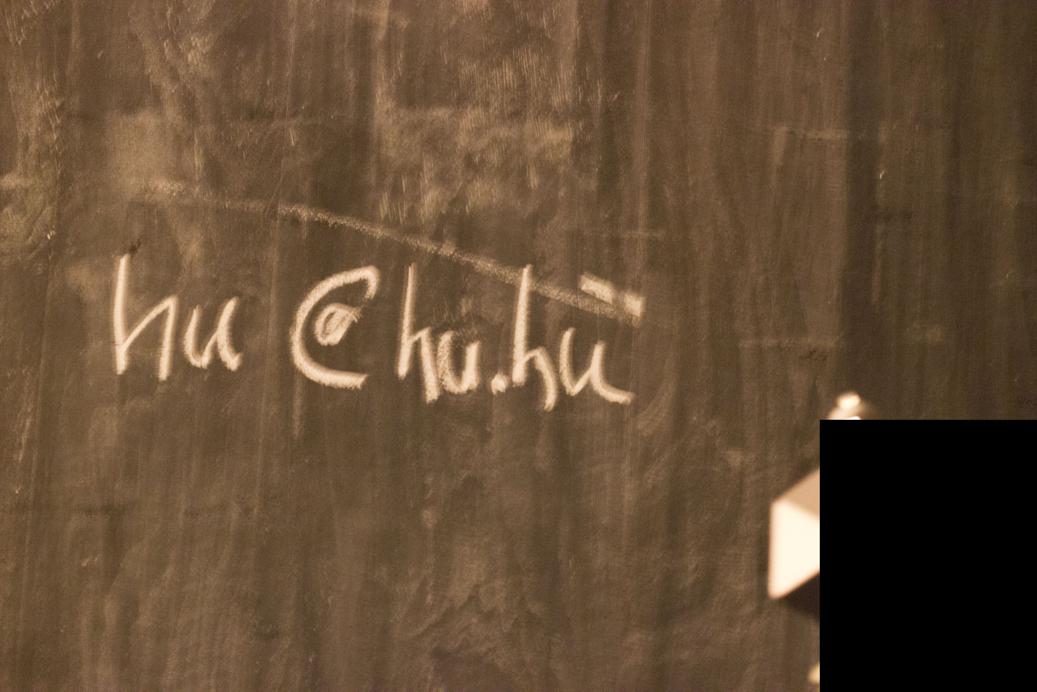 hu @ hu.hu